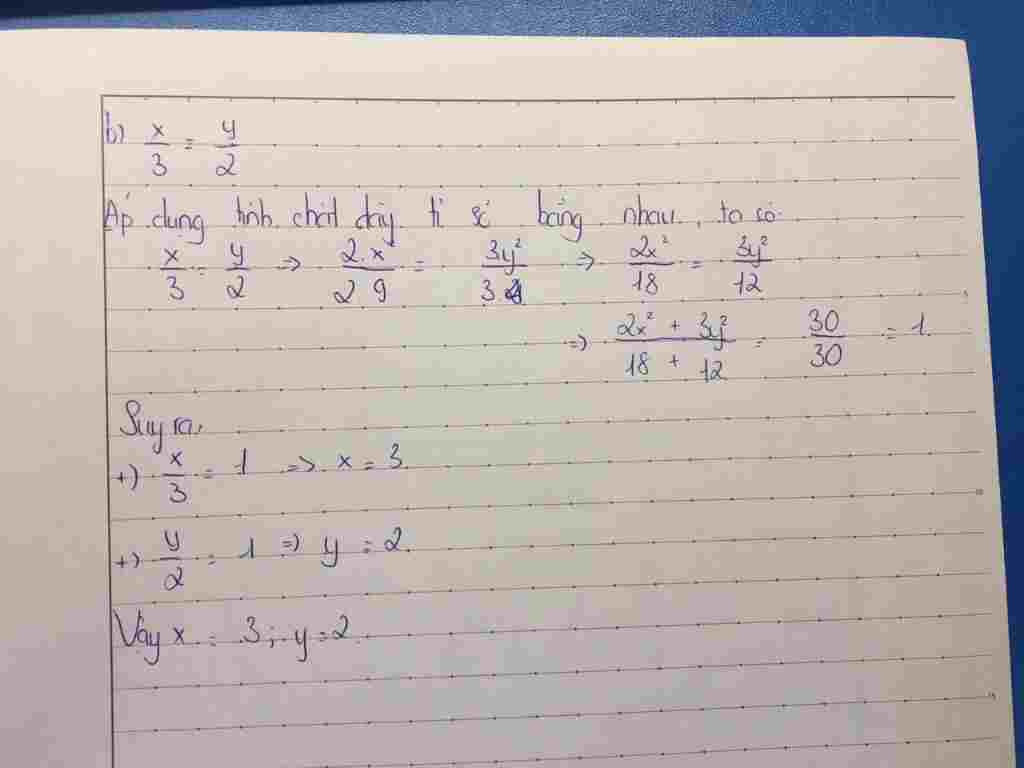 b) x/3 = y/2
Áp dụng tính chất dãy tỉ số bằng nhau, ta có:
x/3 = y/2 => 2.x/2.9 = 3y²/3.4 => 2x²/18 = 3y²/12
=> 2x² + 3y²/18 + 12 = 30/30 = 1.
Suy ra:
+) x/3 = 1 => x = 3
+) y/2 = 1 => y = 2
Vậy x = 3; y = 2